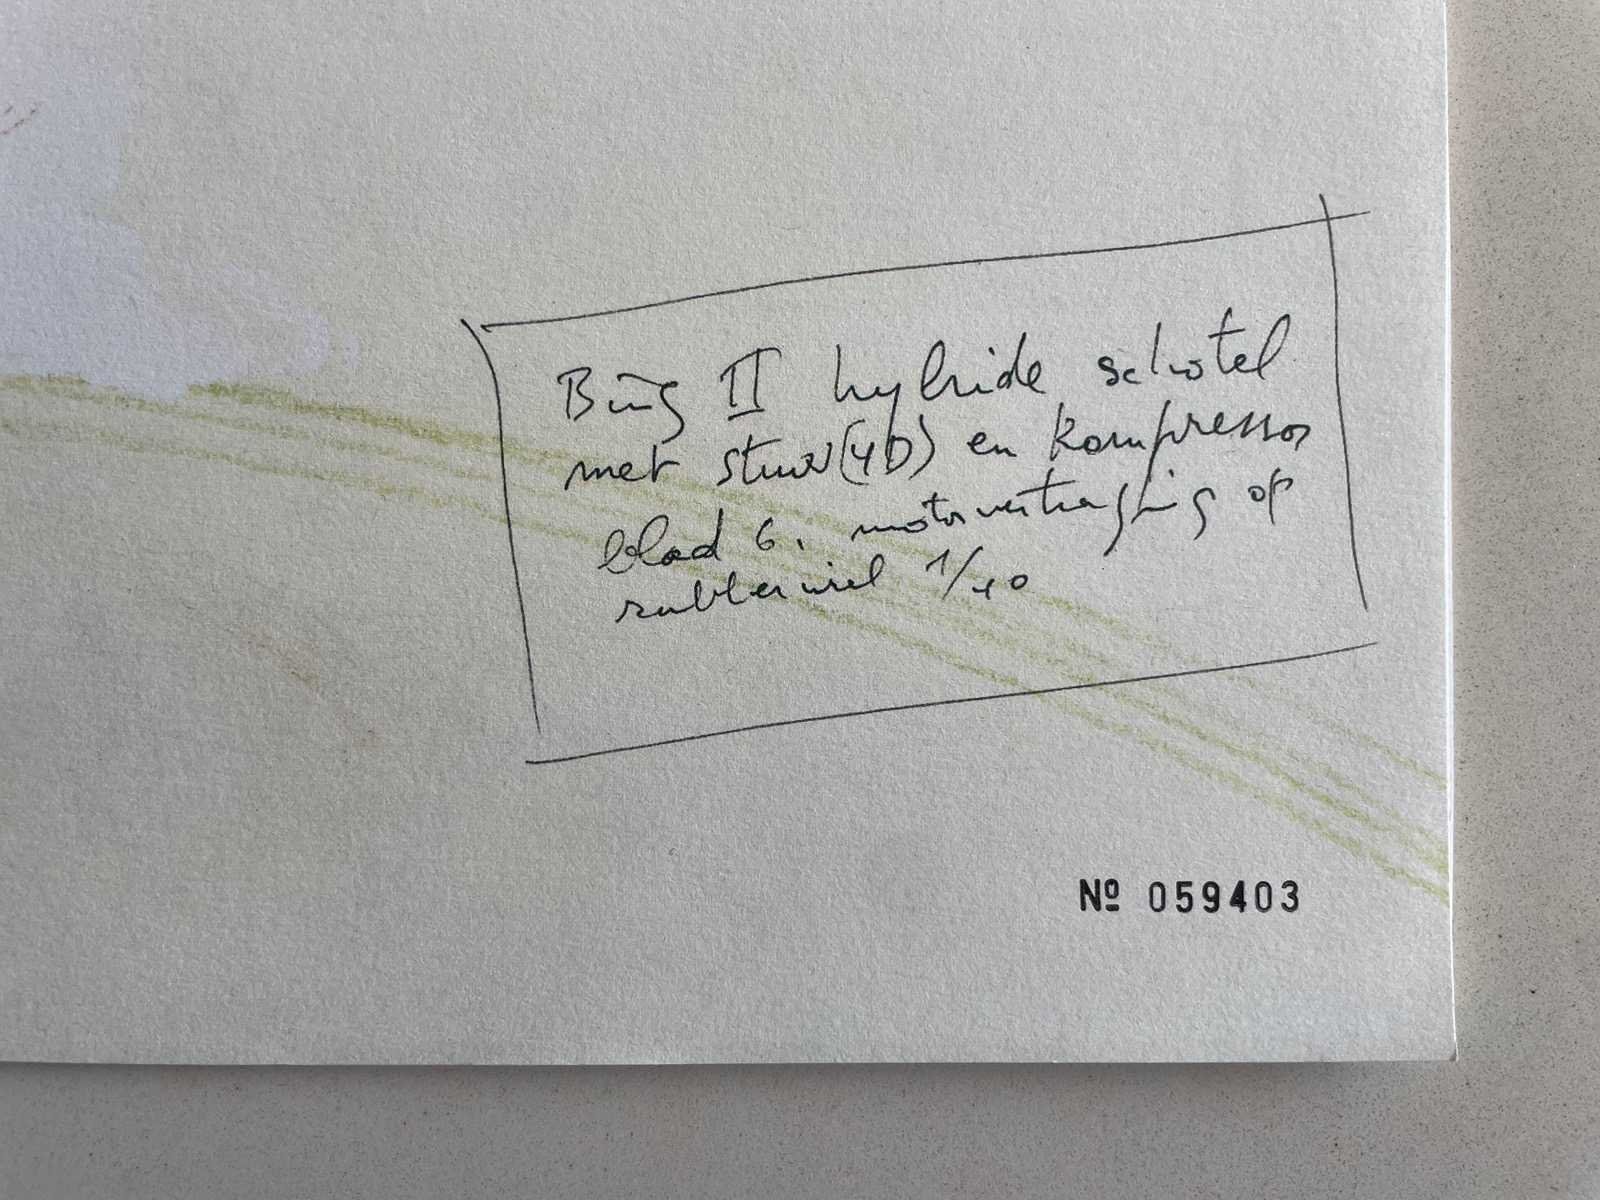 Bing II hybride schotel
met stuur (4D) en kompressor
blad 6. motorvertraging op
rubberwiel 1/40
Nº 059403